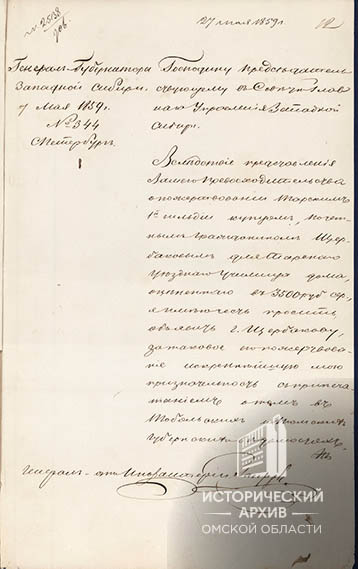 27 мая 1859 г.
12
Генералъ-Губернатора
Западной Сибири.
7 Мая 1859 г.
№ 344
С.Петербургъ
Господину Председатель
ствующему въ Советѣ Глав
наго Управленія Западной
Сибири.
Вследствіе представленія
Вашего Превосходительства
о пожертвованіи Тарскимъ
1й гильдіи купцомъ, почет
нымъ Гражданиномъ Щер
баковымъ для Тарскаго
Уезднаго Училища дома,
оцененнаго въ 3500 руб. сер.
я имею честь просить
объявить г. Щербакову,
за таковое пожертвова
ніе искреннейшую мою
признательность съ припеча
таніемъ о томъ въ
Тобольскихъ и Томскихъ
Губернскихъ Ведомостяхъ.
Генералъ-отъ-Инфантеріи
ИСТОРИЧЕСКИЙ
АРХИВ
ОМСКОЙ ОБЛАСТИ